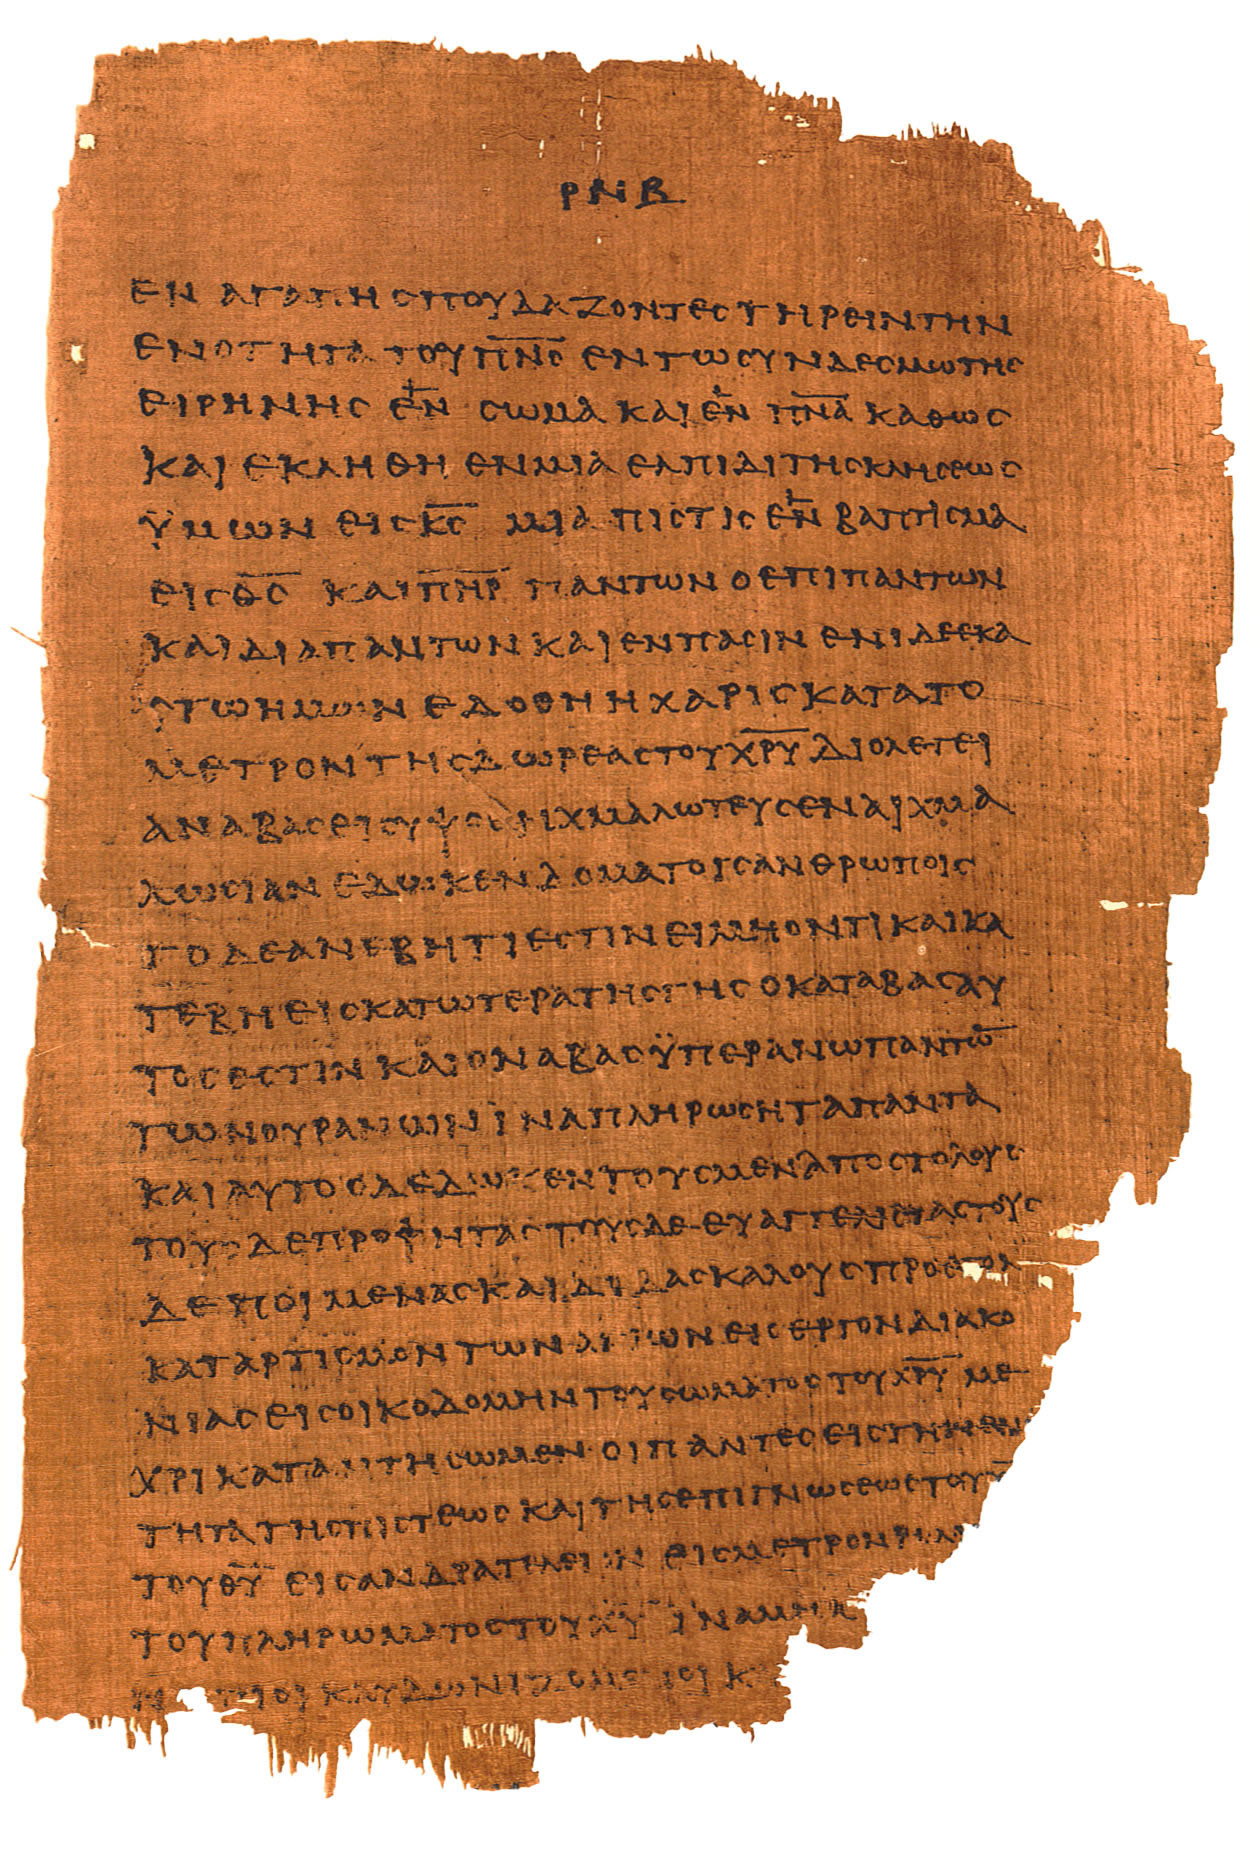 ΡΝΒ
ΕΝ ΑΓΑΠΗ ΣΠΟΥΔΑΖΟΝΤΕΣ ΤΗΡΕΙΝ ΤΗΝ
ΕΝΟΤΗΤΑ ΤΟΥ Π̅Ν̅Σ̅ ΕΝ ΤΩ ΣΥΝΔΕΣΜΩ ΤΗΣ
ΕΙΡΗΝΗΣ ΕΝ ΣΩΜΑ ΚΑΙ ΕΝ Π̅Ν̅Α̅ ΚΑΘΩΣ
ΚΑΙ ΕΚΛΗΘΗ ΕΝ ΜΙΑ ΕΛΠΙΔΙ ΤΗΣ ΚΛΗΣΕΩΣ
ΫΜΩΝ ΕΙΣ Κ̅Σ̅ ΜΙΑ ΠΙΣΤΙΣ ΕΝ ΒΑΠΤΙΣΜΑ
ΕΙΣ Θ̅Σ̅ ΚΑΙ Π̅Η̅Ρ̅ ΠΑΝΤΩΝ Ο ΕΠΙ ΠΑΝΤΩΝ
ΚΑΙ ΔΙΑ ΠΑΝΤΩΝ ΚΑΙ ΕΝ ΠΑΣΙΝ ΕΝΙ ΔΕ ΕΚΑ
ΣΤΩ ΗΜΩΝ ΕΔΟΘΗ Η ΧΑΡΙΣ ΚΑΤΑ ΤΟ
ΜΕΤΡΟΝ ΤΗΣ ΔΩΡΕΑΣ ΤΟΥ Χ̅Ρ̅Υ̅ ΔΙΟ ΛΕΓΕΙ
ΑΝΑΒΑΣ ΕΙΣ ΥΨΟΣ ΗΧΜΑΛΩΤΕΥΣΕΝ ΑΙΧΜΑ
ΛΩΣΙΑΝ ΕΔΩΚΕΝ ΔΟΜΑΤΟΙΣ ΑΝΘΡΩΠΟΙΣ
ΤΟ ΔΕ ΑΝΕΒΗ ΤΙ ΕΣΤΙΝ ΕΙ ΜΗ ΟΝΤΙ ΚΑΙ ΚΑ
ΤΕΒΗ ΕΙΣ ΚΑΤΩΤΕΡΑ ΤΗΣ ΓΗΣ Ο ΚΑΤΑΒΑΣ ΑΥ
ΤΟΣ ΕΣΤΙΝ ΚΑΙ Ο ΝΑΒΑΣ ΫΠΕΡΑΝΩ ΠΑΝΤΩ̅
ΤΩΝ ΟΥΡΑΝΩΝ ΙΝΑ ΠΛΗΡΩΣΗ ΤΑ ΠΑΝΤΑ
ΚΑΙ ΑΥΤΟΣ ΔΕΔΩΚΕΝ ΤΟΥΣ ΜΕΝ ΑΠΟΣΤΟΛΟΥΣ
ΤΟΥΣ ΔΕ ΠΡΟΦΗΤΑΣ ΤΟΥΣ ΔΕ ΕΥΑΓΓΕΛΙΣΤΑΣ ΤΟΥΣ
ΔΕ ΠΟΙΜΕΝΑΣ ΚΑΙ ΔΙΔΑΣΚΑΛΟΥΣ ΠΡΟΣ ΤΟΝ
ΚΑΤΑΡΤΙΣΜΟΝ ΤΩΝ ΑΓΙΩΝ ΕΙΣ ΕΡΓΟΝ ΔΙΑΚΟ
ΝΙΑΣ ΕΙΣ ΟΙΚΟΔΟΜΗΝ ΤΟΥ ΣΩΜΑΤΟΣ ΤΟΥ Χ̅Ρ̅Υ̅ ΜΕ
ΧΡΙ ΚΑΤΑΝΤΗΣΩΜΕΝ ΟΙ ΠΑΝΤΕΣ ΕΙΣ ΤΗΝ ΕΝ
ΤΗΤΑ ΤΗΣ ΠΙΣΤΕΩΣ ΚΑΙ ΤΗΣ ΕΠΙΓΝΩΣΕΩΣ ΤΟΥ Υ̅
ΤΟΥ Θ̅Υ̅ ΕΙΣ ΑΝΔΡΑ ΤΕΛΕΙΟΝ ΕΙΣ ΜΕΤΡΟΝ
ΤΟΥ ΠΛΗΡΩΜΑΤΟΣ ΤΟΥ Χ̅Υ̅ ΙΝΑ ΜΗΚ
ΝΗΠΙΟΙ ΚΛΥΔΩΝΙΖΟΜΕΝΟΙ Κ